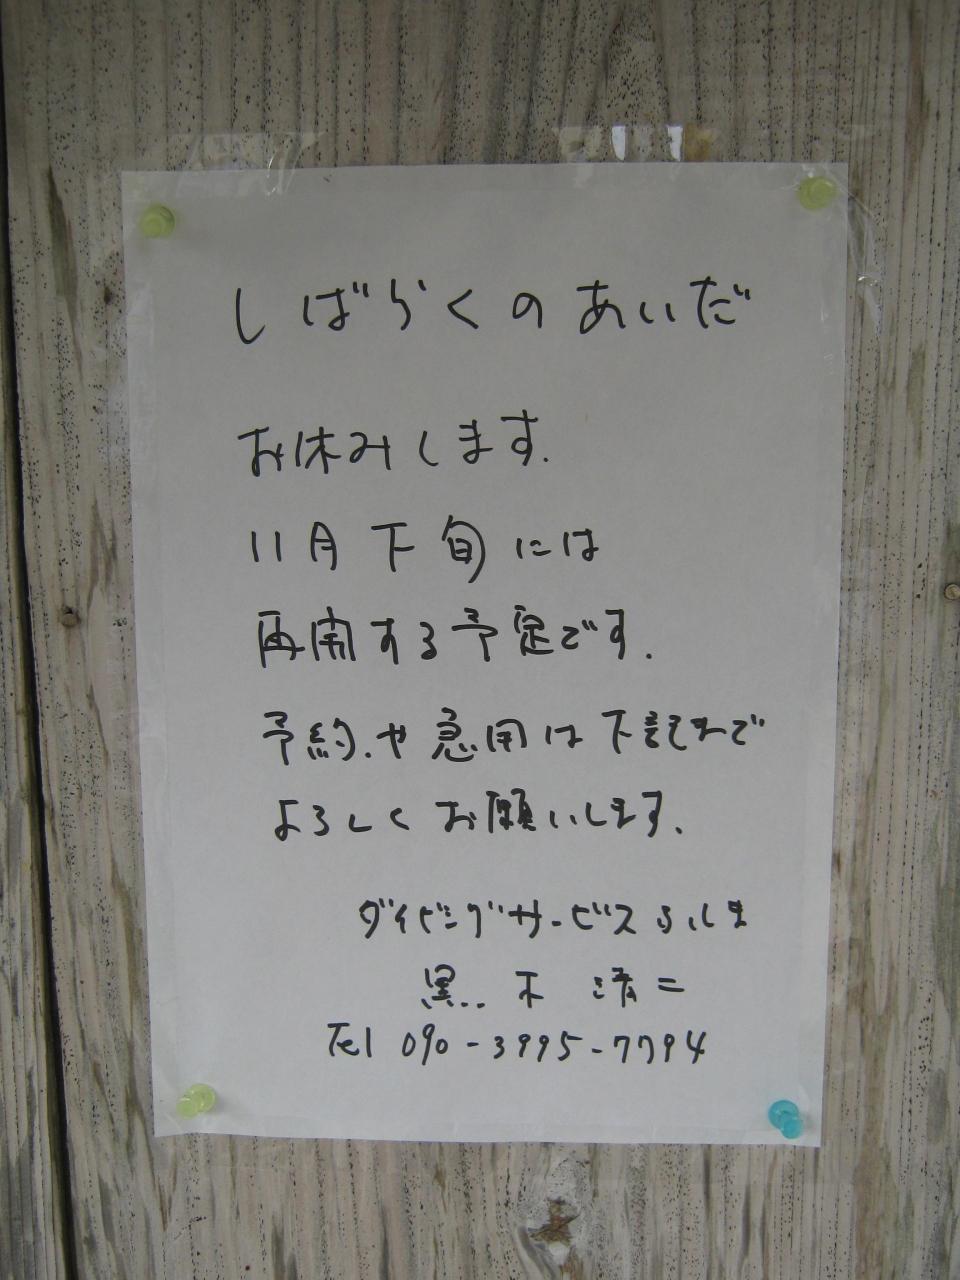 しばらくのあいだ
お休みします.
11月下旬には
再開する予定です.
予約.や急用は下記まで
よろしくお願いします.
ダイビングサービス
黒木 清二
Tel 090-3995-7794